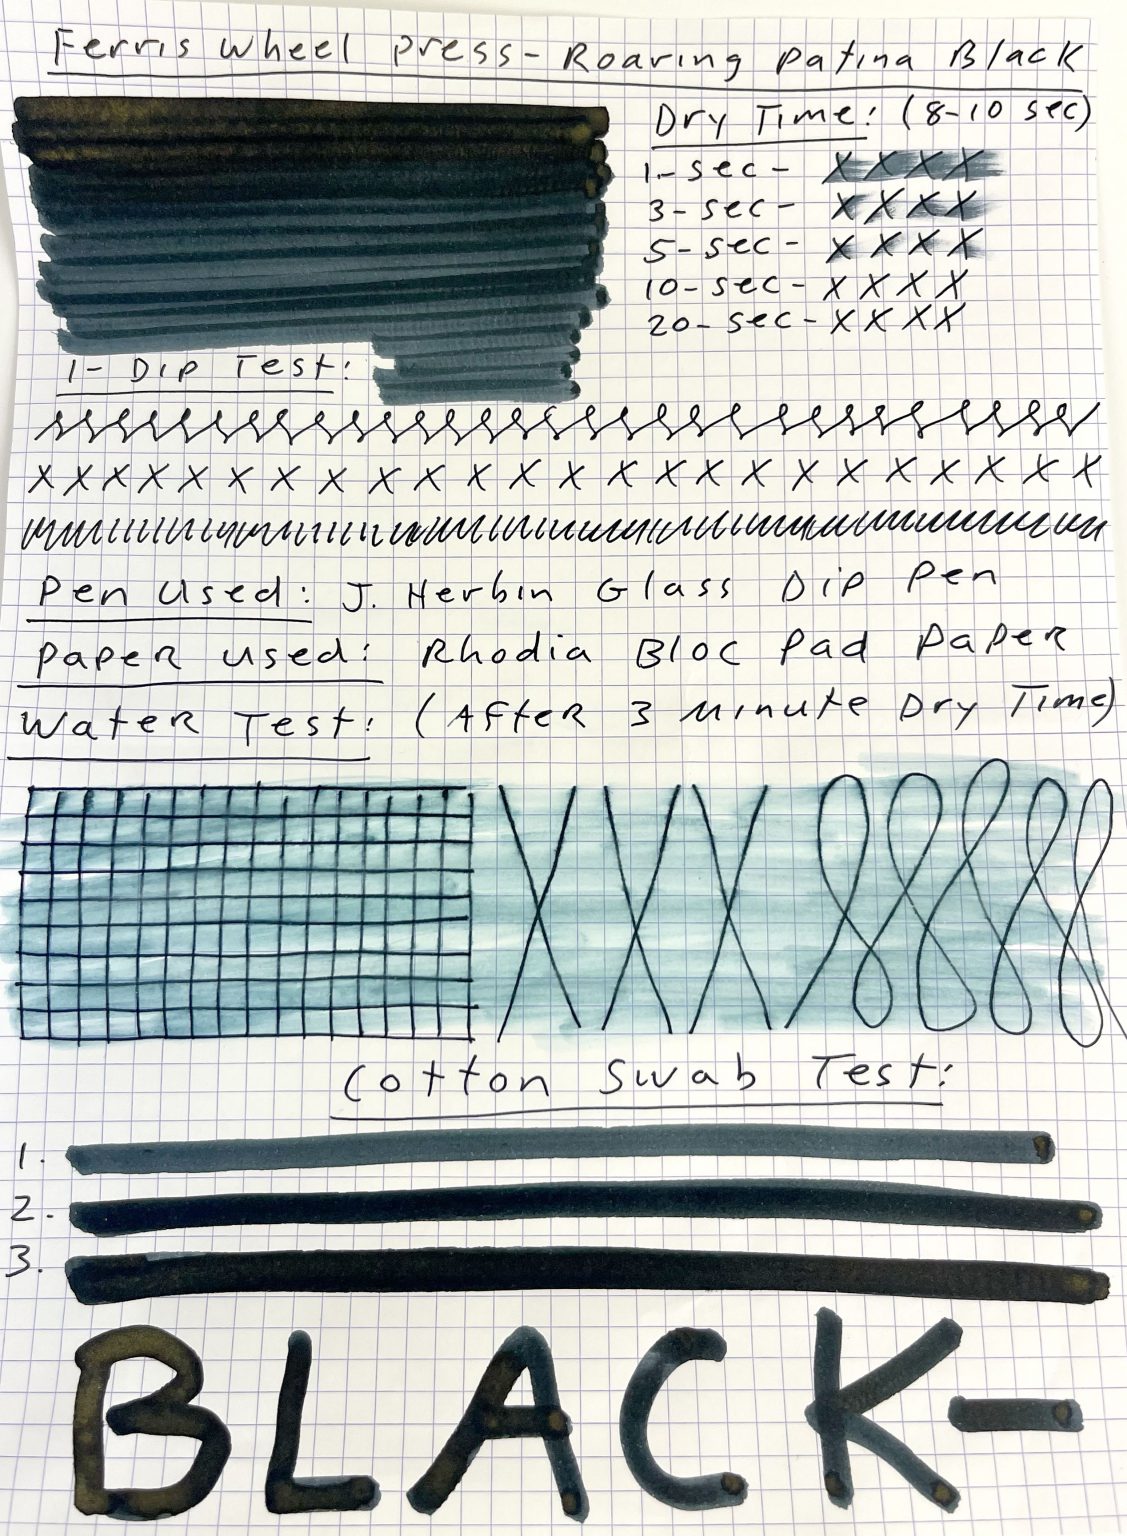 Ferris Wheel Press - Roaring Patina Black
Dry Time: (8-10 sec)
1-sec- X X X X
3-sec- X X X X
5-sec- X X X X
10-sec- X X X X
20-sec- X X X X
1-Dip Test:
X X X X X X X X X X X X X X X X X X X X X X X X
Pen Used: J. Herbin Glass Dip Pen
Paper Used: Rhodia Bloc Pad Paper
Water Test: (After 3 Minute Dry Time)
Cotton Swab Test:
1.
2.
3.
BLACK-